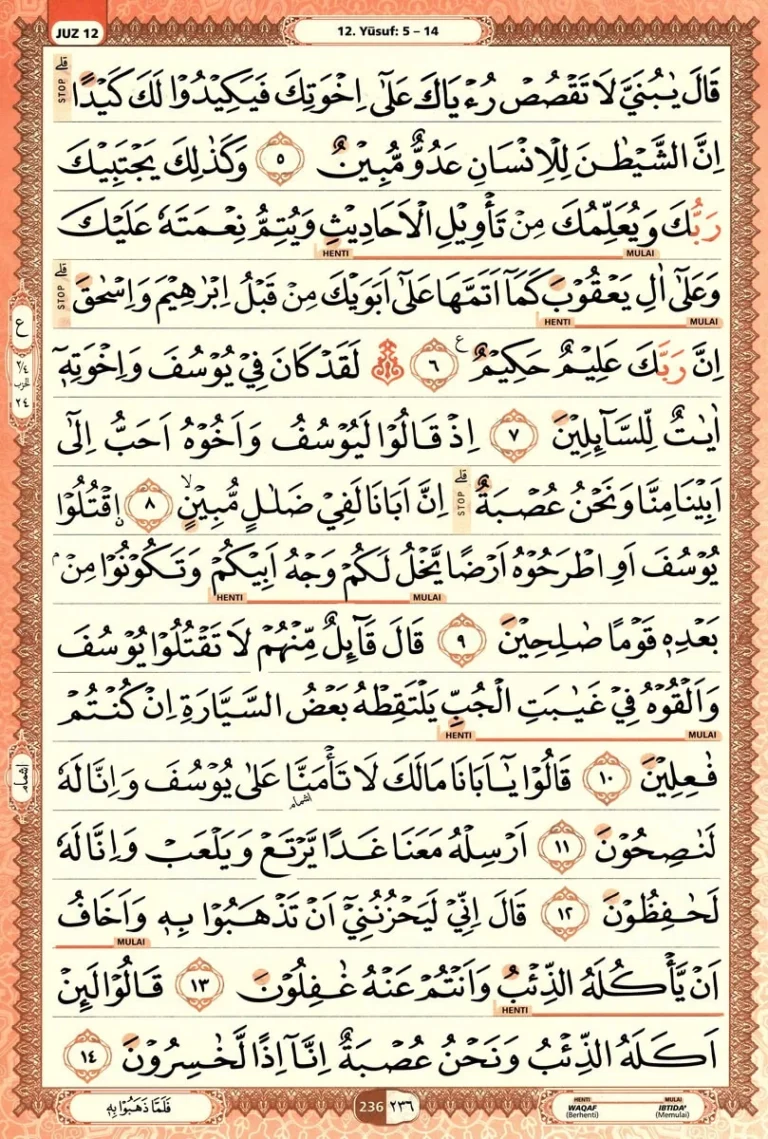 JUZ 12
12. Yūsuf: 5 – 14
قَالَ يٰبُنَيَّ لَا تَقْصُصْ رُءْيَاكَ عَلٰٓى اِخْوَتِكَ فَيَكِيْدُوْا لَكَ كَيْدًاۗ
STOP
اِنَّ الشَّيْطٰنَ لِلْاِنْسَانِ عَدُوٌّ مُّبِيْنٌ ٥ وَكَذٰلِكَ يَجْتَبِيْكَ
رَبُّكَ وَيُعَلِّمُكَ مِنْ تَأْوِيْلِ الْاَحَادِيْثِ وَيُتِمُّ نِعْمَتَهٗ عَلَيْكَ
MULAI HENTI
وَعَلٰٓى اٰلِ يَعْقُوْبَ كَمَآ اَتَمَّهَا عَلٰٓى اَبَوَيْكَ مِنْ قَبْلُ اِبْرٰهِيْمَ وَاِسْحٰقَۗ
STOP
MULAI HENTI
اِنَّ رَبَّكَ عَلِيْمٌ حَكِيْمٌ ࣖ ٦ لَقَدْ كَانَ فِيْ يُوْسُفَ وَاِخْوَتِهٖٓ
اٰيٰتٌ لِّلسَّاۤىِٕلِيْنَ ٧ اِذْ قَالُوْا لَيُوْسُفُ وَاَخُوْهُ اَحَبُّ اِلٰٓى
اَبِيْنَا مِنَّا وَنَحْنُ عُصْبَةٌۗ STOP اِنَّ اَبَانَا لَفِيْ ضَلٰلٍ مُّبِيْنٍۙ ٨ ۨاقْتُلُوْا
يُوْسُفَ اَوِ اطْرَحُوْهُ اَرْضًا يَّخْلُ لَكُمْ وَجْهُ اَبِيْكُمْ وَتَكُوْنُوْا مِنْۢ
MULAI HENTI
بَعْدِهٖ قَوْمًا صٰلِحِيْنَ ٩ قَالَ قَاۤىِٕلٌ مِّنْهُمْ لَا تَقْتُلُوْا يُوْسُفَ
وَاَلْقُوْهُ فِيْ غَيٰبَتِ الْجُبِّ يَلْتَقِطْهُ بَعْضُ السَّيَّارَةِ اِنْ كُنْتُمْ
MULAI HENTI
فٰعِلِيْنَ ١٠ قَالُوْا يٰٓاَبَانَا مَالَكَ لَا تَأْمَنَّ۫ا عَلٰى يُوْسُفَ وَاِنَّا لَهٗ
اشمام
لَنٰصِحُوْنَ ١١ اَرْسِلْهُ مَعَنَا غَدًا يَّرْتَعْ وَيَلْعَبْ وَاِنَّا لَهٗ
لَحٰفِظُوْنَ ١٢ قَالَ اِنِّيْ لَيَحْزُنُنِيْٓ اَنْ تَذْهَبُوْا بِهٖ وَاَخَافُ
MULAI
اَنْ يَّأْكُلَهُ الذِّئْبُ وَاَنْتُمْ عَنْهُ غٰفِلُوْنَ ١٣ قَالُوْا لَىِٕنْ
HENTI
اَكَلَهُ الذِّئْبُ وَنَحْنُ عُصْبَةٌ اِنَّآ اِذًا لَّخٰسِرُوْنَ ١٤
ع
٣/٤
الحزب
٢٤
اشمام
فَلَمَّا ذَهَبُوْا بِهٖ
236 ٢٣٦
HENTI MULAI
WAQAF IBTIDA'
(Berhenti) (Memulai)